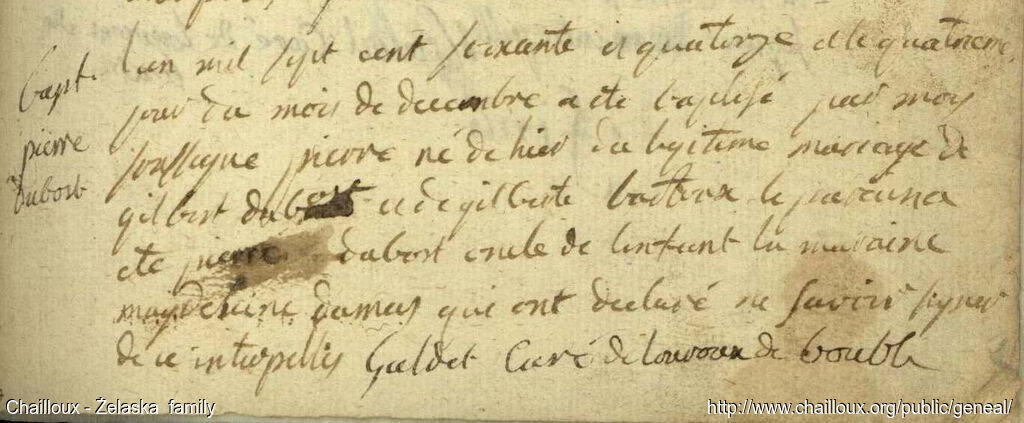 bapt.
pierre
dubost
l'an mil sept cent soixante et quatorze et le quatrieme
jour du mois de decembre a ete baptisé par moy
soussigne pierre né de hier du legitime mariage de
gilbert dubost et de gilberte le parain a
ete pierre dubost oncle de lenfant la maraine
magdeleine dumas qui ont declaré ne savoir signer
de ce interpellés Galdet Curé de louroux de bouble
Chailloux - Želaska family
http://www.chailloux.org/public/geneal/